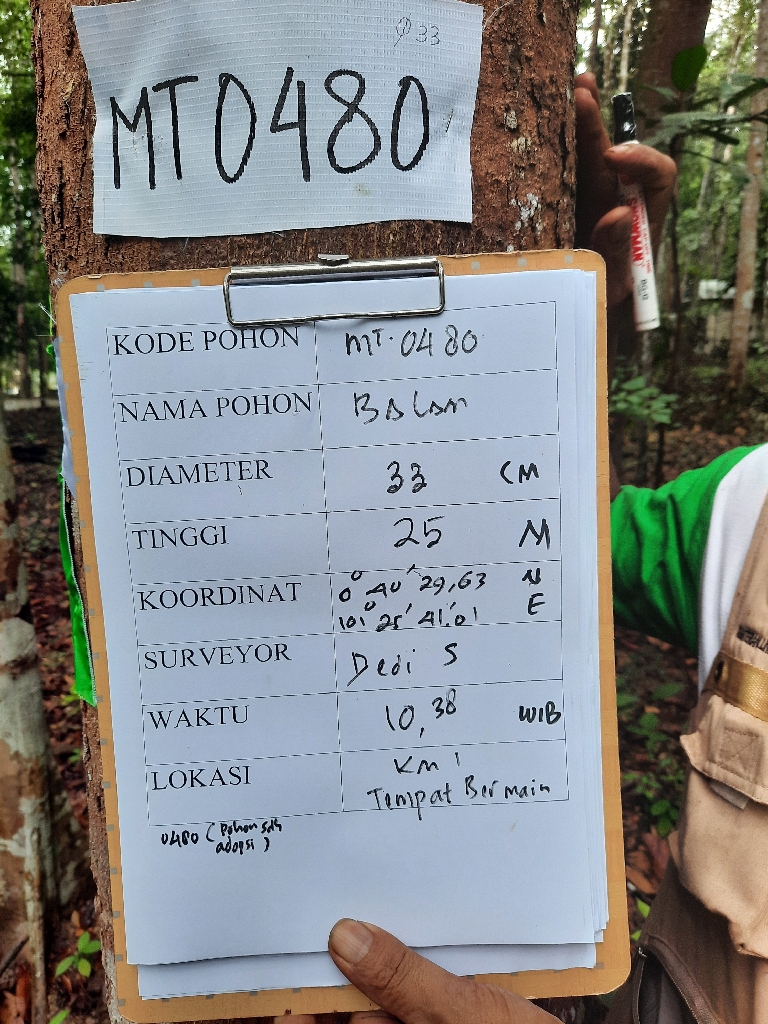 Ø33
MT0480
KODE POHON MT.0480
NAMA POHON BALAM
DIAMETER 33 CM
TINGGI 25 M
KOORDINAT 0° 40' 29,63 N
101° 25' 41.01 E
SURVEYOR Dedi S
WAKTU 10,38 WIB
LOKASI KM 1
Tempat Bermain
0480 (Pohon sdh
adopsi)
SNOWMAN